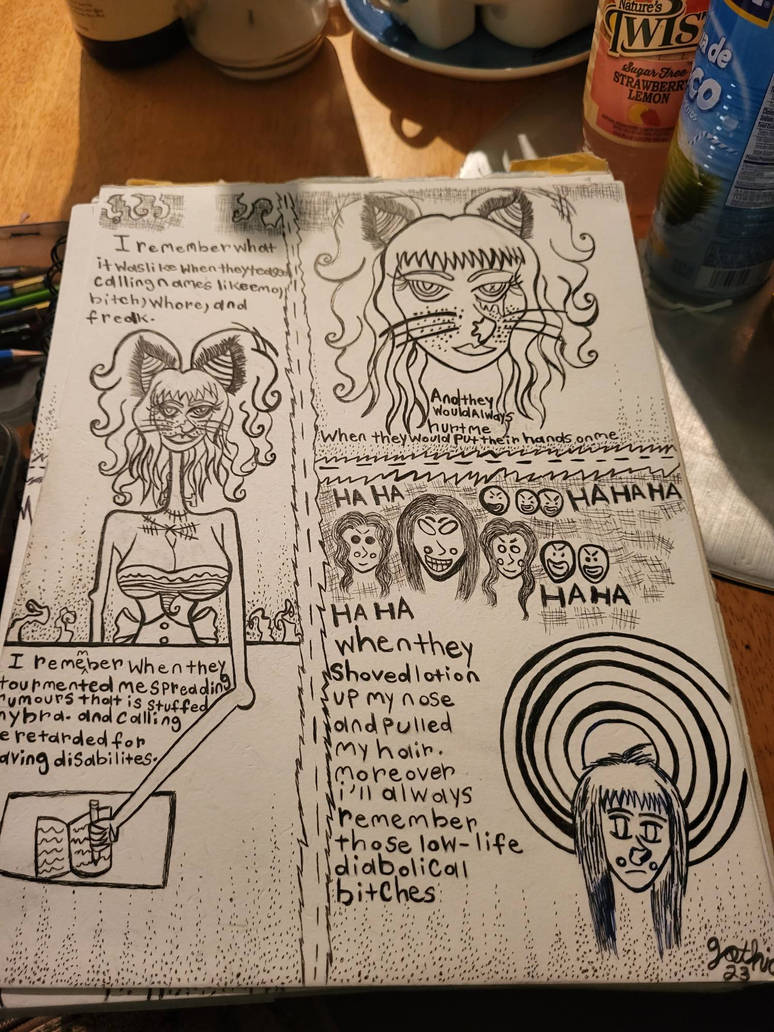 Nature's
TWIS
Sugar Free
STRAWBERRY
LEMON
a de
CO
I remember what
it was like when they teased
calling names like emo,
bitch, whore, and
freak.
And they
would Always
hurt me
When they would put their hands on me
HA HA
HA HA HA
HA HA
HA HA
I remember when they
tourmented me spreading
rumours that is stuffed
my bra. and calling
e retarded for
aving disabilites.
when they
Shoved lotion
up my nose
and pulled
my hair.
moreover
i'll always
remember
those low-life
diabolical
bitches
gothic
23